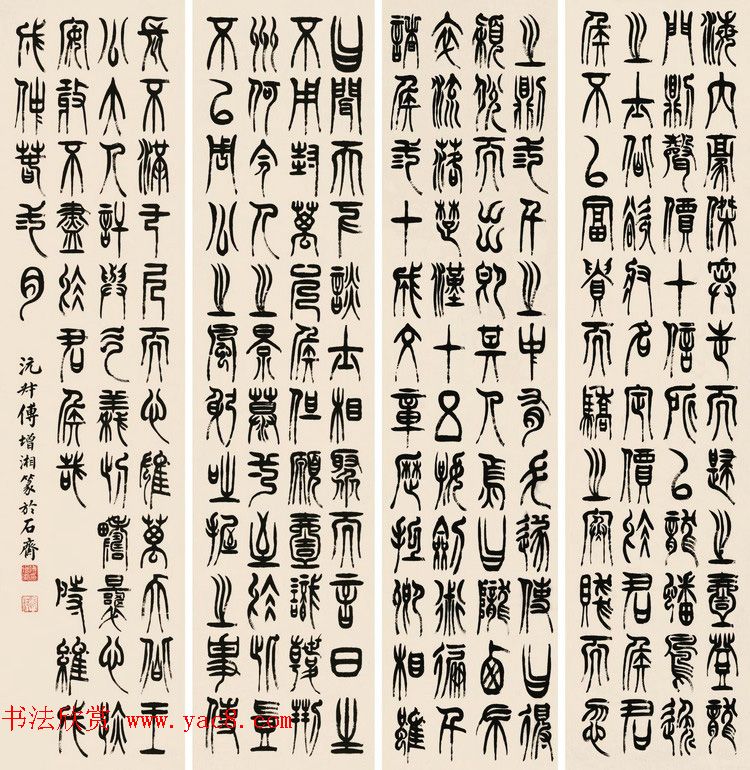 海內豪傑奔走而歸之壹登龍
門則聲價十倍所以龍蟠鳳逸
之士皆欲收名定價於君侯君
侯不以富貴而驕之寒賤而忽
之則三千之中有毛遂使白得
穎脫而出即其人焉白隴西布
衣流落楚漢十五好劍術徧干
諸侯三十成文章歷抵卿相雖
白聞天下談士相聚而言曰生
不用封萬戶侯但願壹識韓荊
州何令人之景慕壹至於此豈
不以周公之風躬吐握之事使
長不滿七尺而心雄萬夫皆王
公大人許與氣義此疇曩心跡
安敢不盡於君侯哉 時維戊
戌仲春三月
沅叔傅增湘篆於石齋
书法欣赏 www.yac8.com